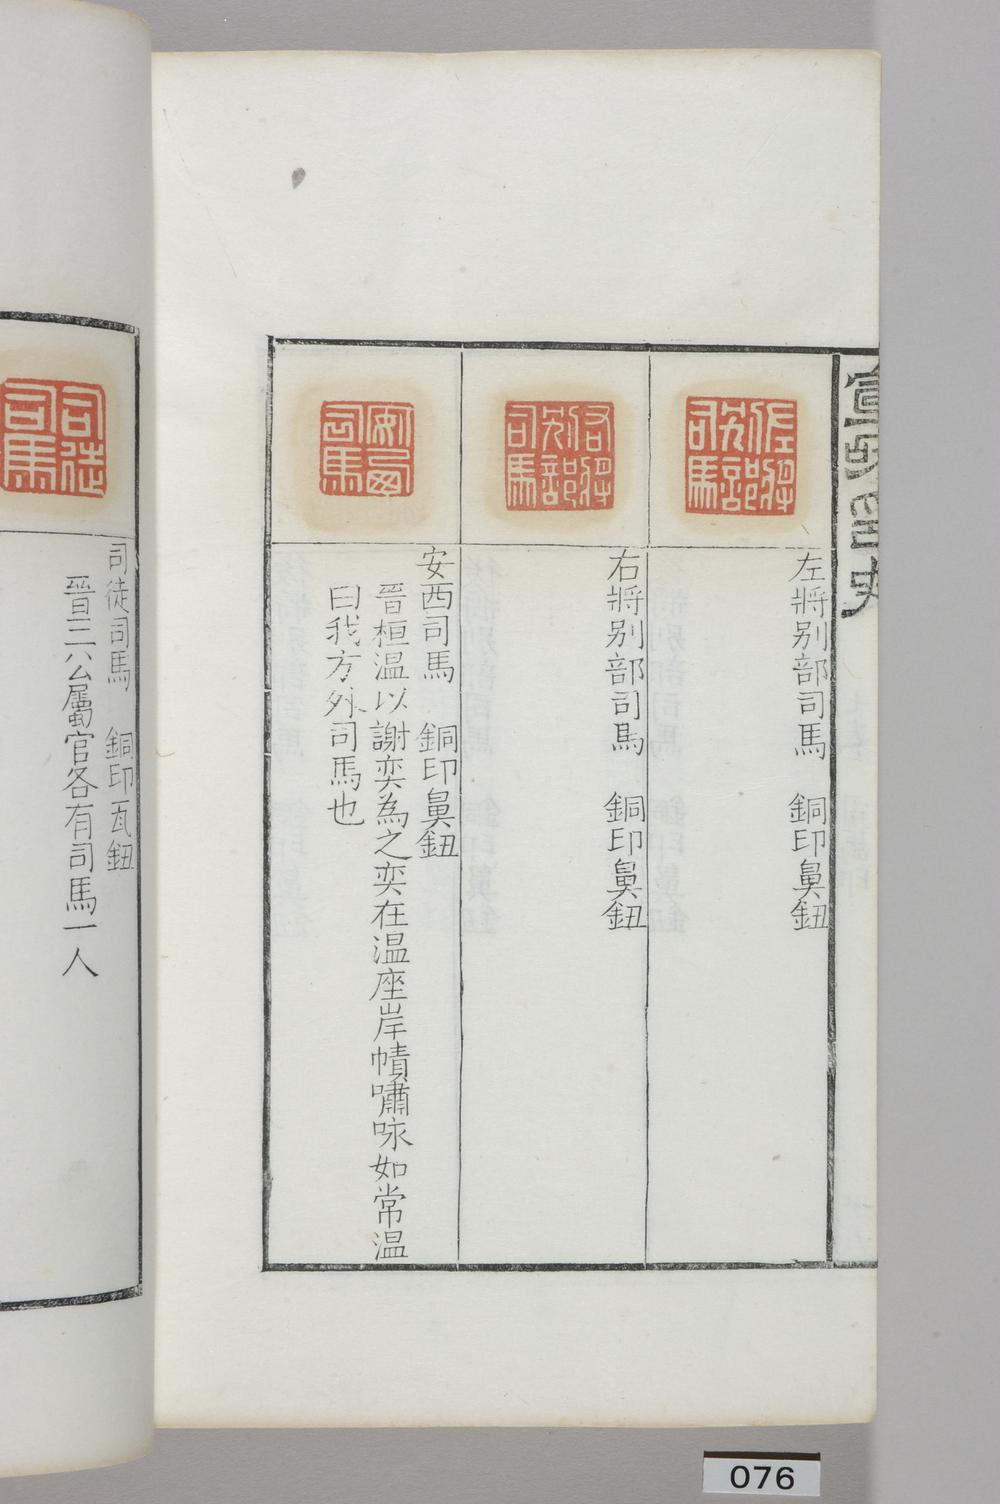 左將別部司馬　銅印鼻鈕
右將別部司馬　銅印鼻鈕
安西司馬　銅印鼻鈕
晉桓温以謝奕為之奕在温座岸幘嘯咏如常温
曰我方外司馬也
司徒司馬　銅印瓦鈕
晉三公屬官各有司馬一人
左將別部司馬
右將別部司馬
安西司馬
司徒司馬
076